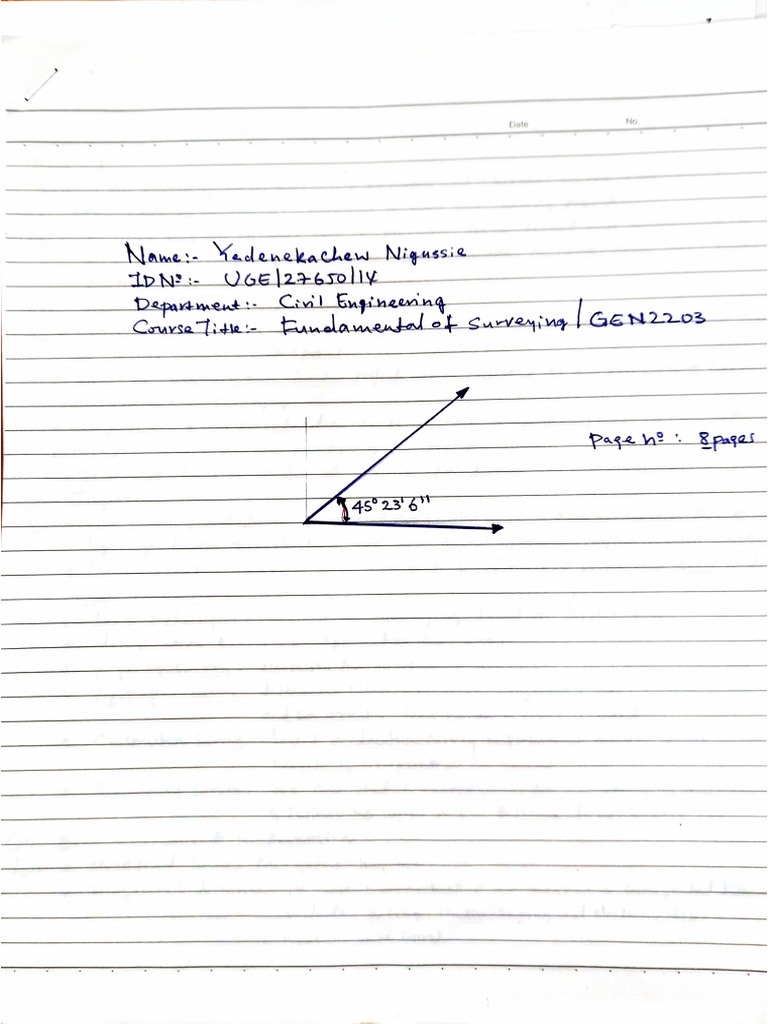 Date No.
Name:- Yadenekachew Nigussie
ID Nº:- UGE/27650/14
Department:- Civil Engineering
Course Title:- Fundamental of Surveying/GEN2203
Page nº: 8 pages
45° 23' 6"